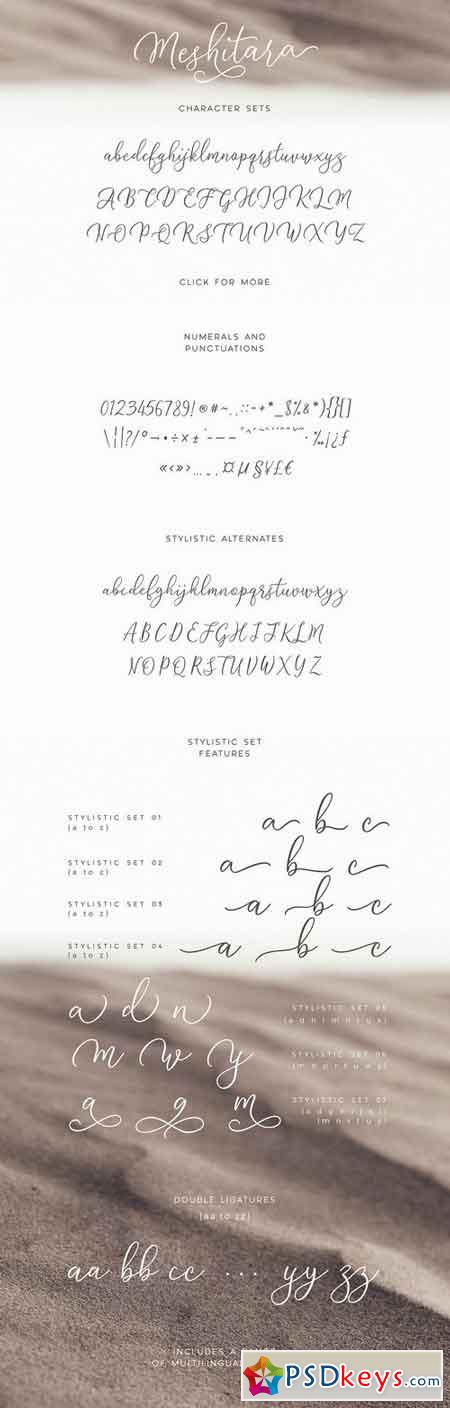 Meshitara
CHARACTER SETS
abcdefghijklmnopqrstuvwxyz
ABCDEFGHIJKLM
NOPQRSTUVWXYZ
CLICK FOR MORE
NUMERALS AND
PUNCTUATIONS
0123456789!®@#~.,:;-+*_$%&*){}[]
\¦||?/°→•÷×±
«‹»›…_.¤µ§¥£€
STYLISTIC ALTERNATES
abcdefghijklmnopqrstuvwxyz
ABCDEFGHIJKLM
NOPQRSTUVWXYZ
STYLISTIC SET
FEATURES
STYLISTIC SET 01
(a to z)
a b c
STYLISTIC SET 02
(a to z)
a b c
STYLISTIC SET 03
(a to z)
a b c
STYLISTIC SET 04
(a to z)
a b c
a d n
STYLISTIC SET 05
m w y
STYLISTIC SET 06
a g m
STYLISTIC SET 07
DOUBLE LIGATURES
(aa to zz)
aa bb cc ... yy zz
INCLUDES A
OF MULTILINGUAL
PSDkeys.com